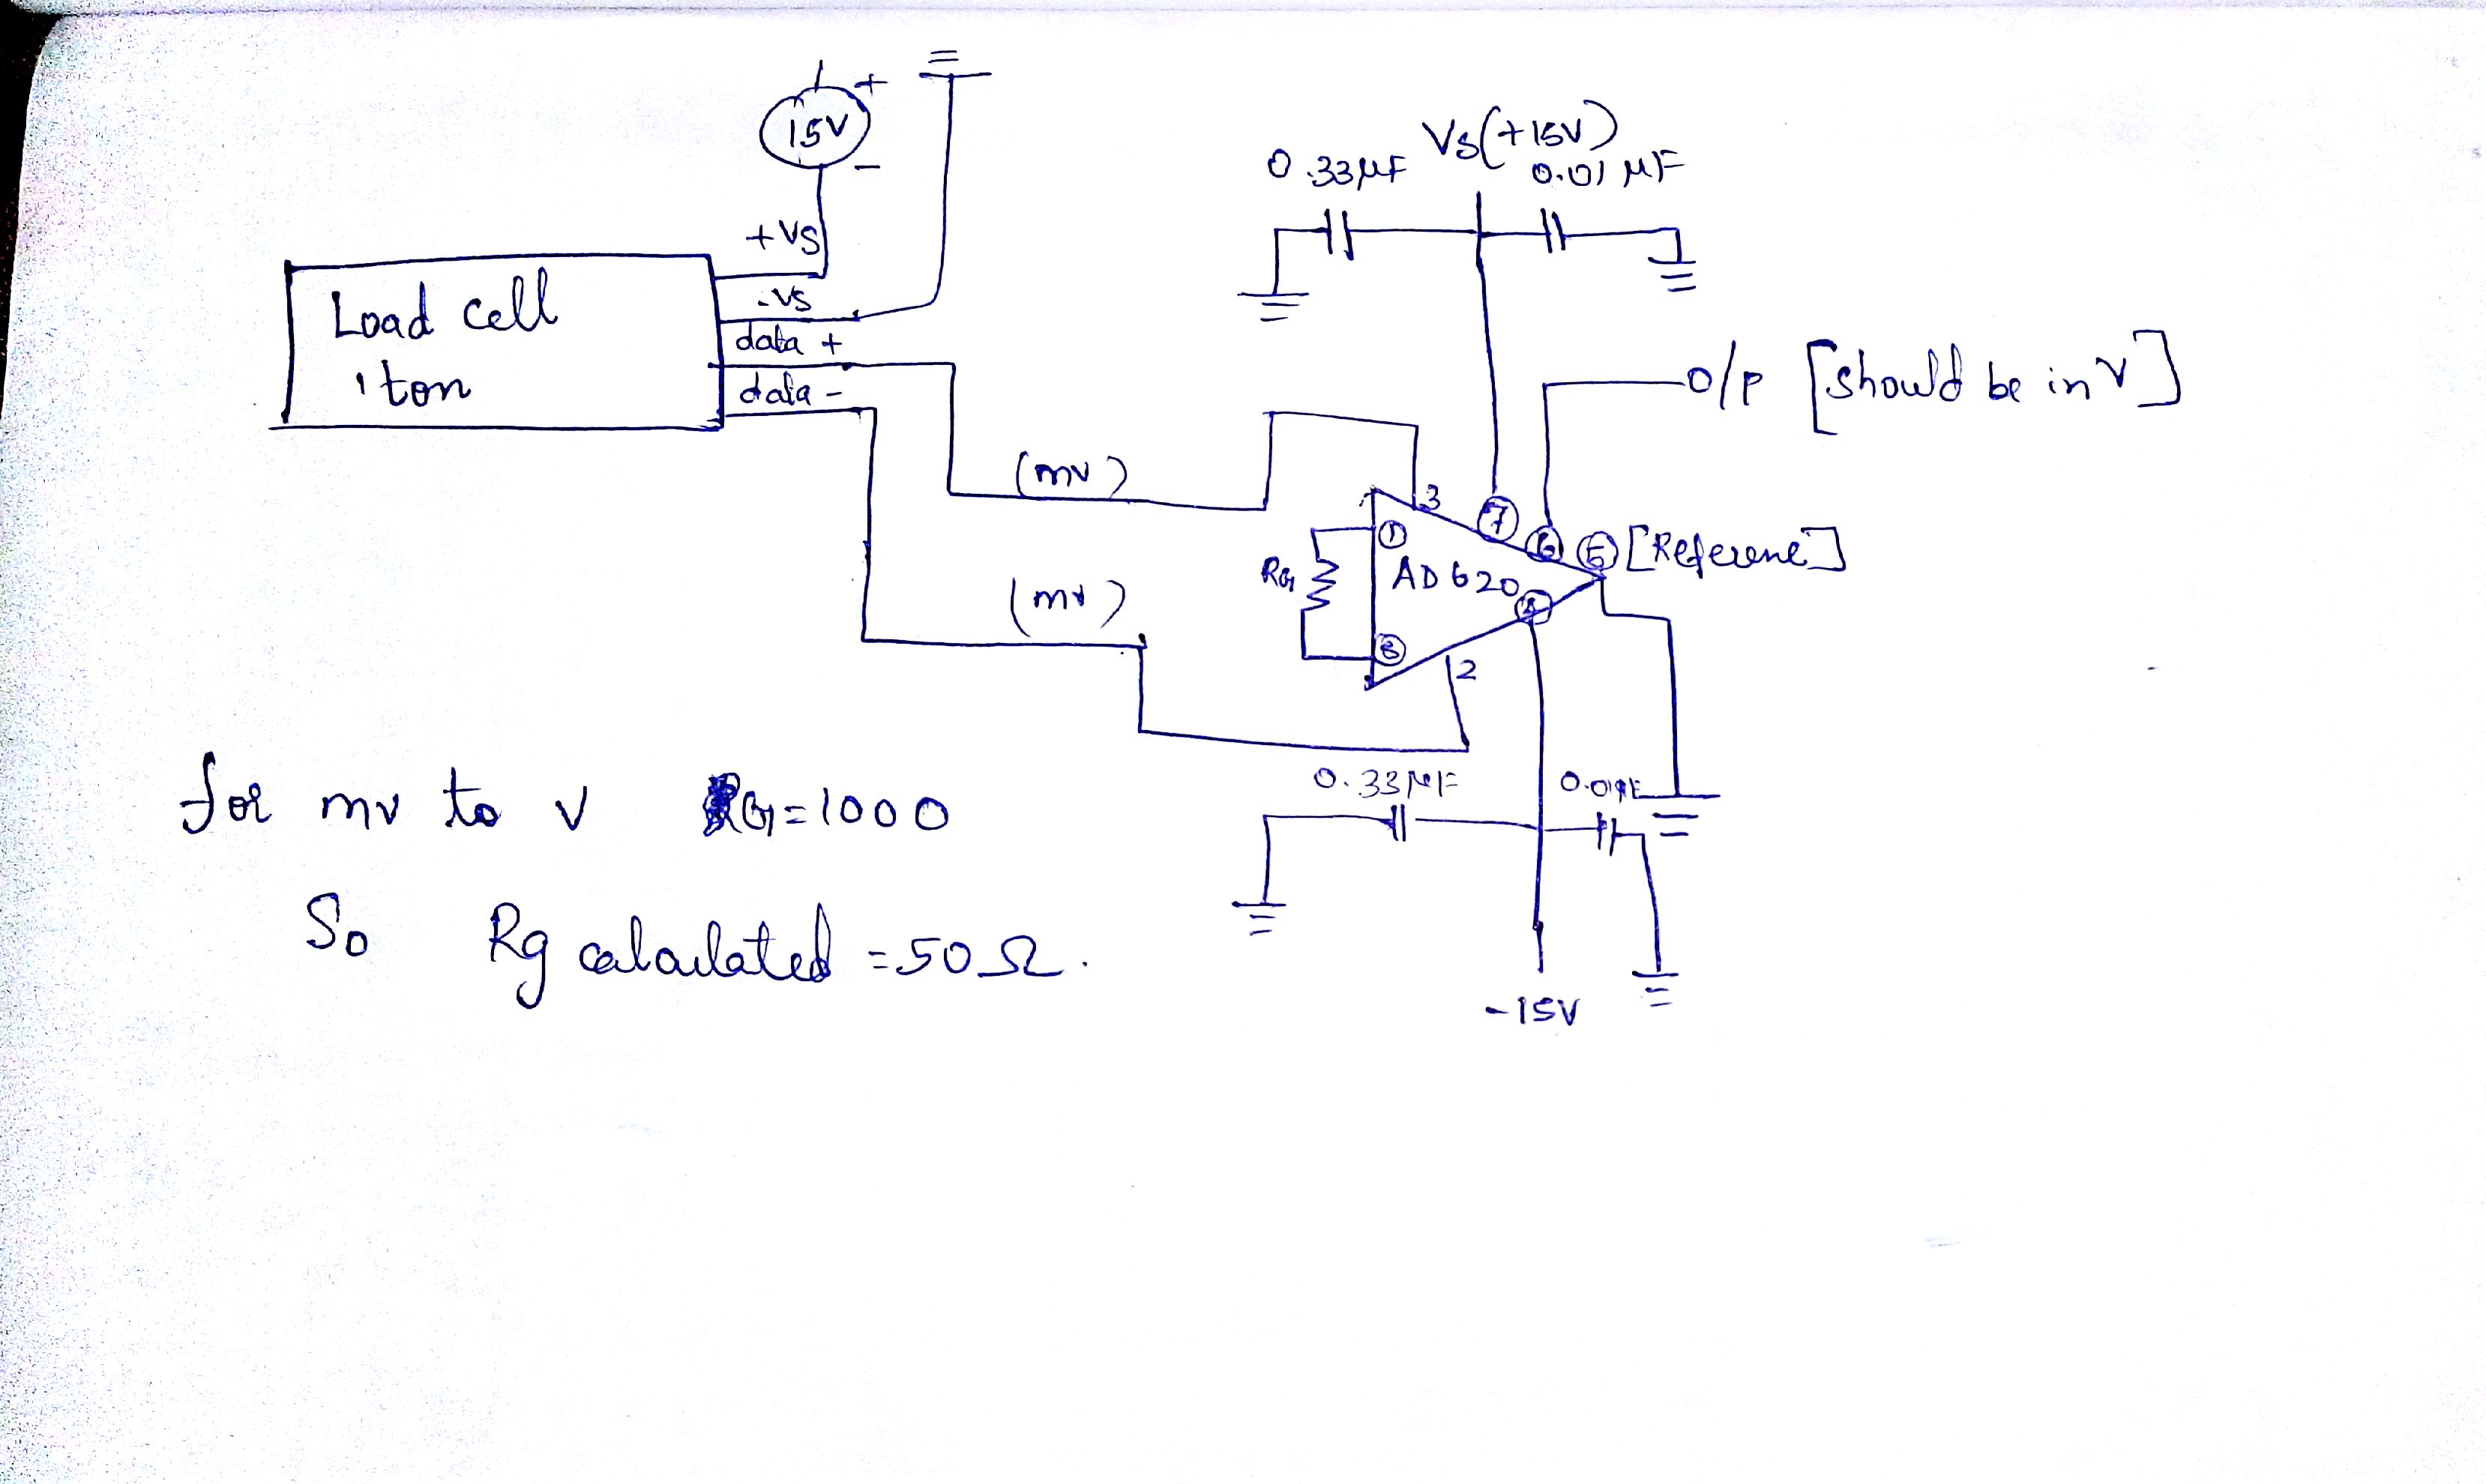 +
15V
−
Vs(+15V)
0.33µF
0.01 µF
+VS
-VS
Load cell
1 ton
data +
data -
o/p [should be in V]
(mv)
3
7
6
5
[Reference]
1
RG
AD620
4
(mv)
8
2
0.33µF
0.01µF
for mv to v G=1000
So Rg calculated =50Ω.
-15V